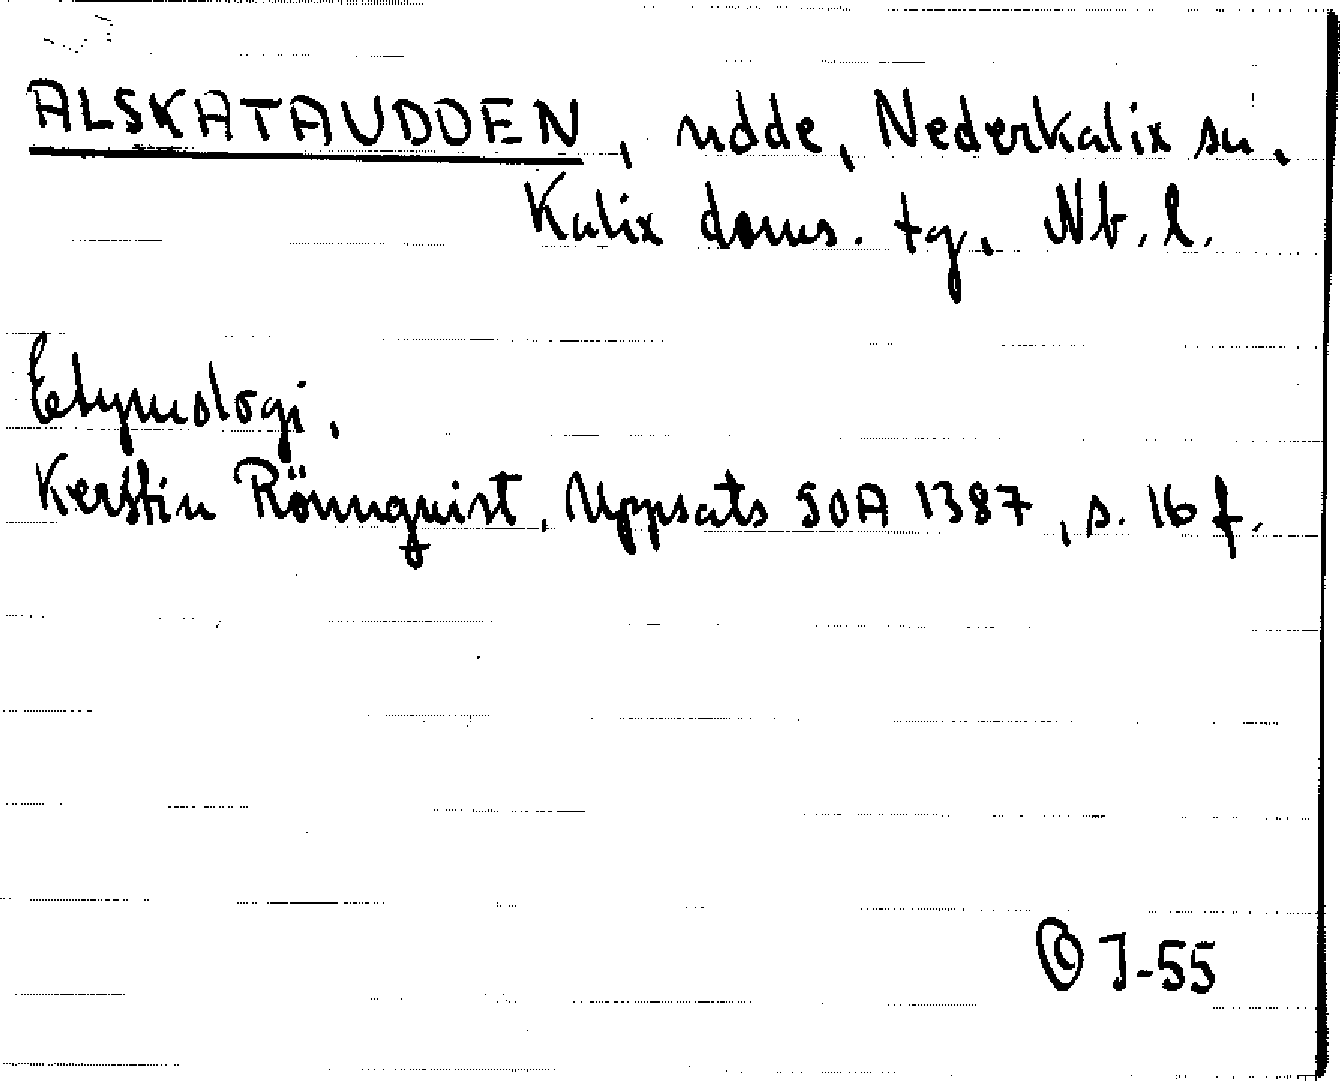 ALSKATAUDDEN, udde, Nederkalix sn.
Kalix doms. tg. Nb. l.
Etymologi.
Kerstin Rönnquist, Uppsats SOA 1387, s. 16 f.
© J-55